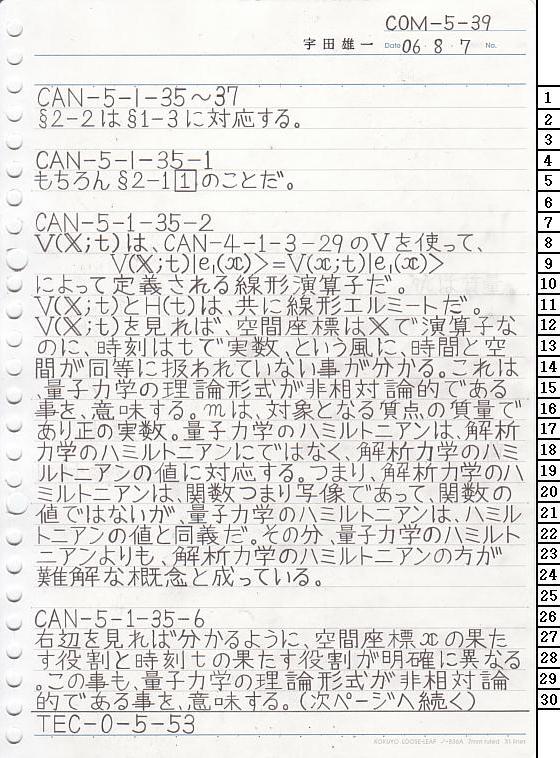 COM-5-39
宇田雄一 Date 06・8・7 No.
CAN-5-1-35～37
§2-2は§1-3に対応する。
CAN-5-1-35-1
もちろん§2-1 1 のことだ。
CAN-5-1-35-2
V(X;t)は、CAN-4-1-3-29のVを使って、
V(X;t)|e₁(x)>=V(x;t)|e₁(x)>
によって定義される線形演算子だ。
V(X;t)とH(t)は、共に線形エルミートだ。
V(X;t)を見れば、空間座標はXで演算子な
のに、時刻はtで実数、という風に、時間と空
間が同等に扱われていない事が分かる。これは
、量子力学の理論形式が非相対論的である
事を、意味する。mは、対象となる質点の質量で
あり正の実数。量子力学のハミルトニアンは、解析
力学のハミルトニアンにではなく、解析力学のハミ
ルトニアンの値に対応する。つまり、解析力学のハ
ミルトニアンは、関数つまり写像であって、関数の
値ではないが、量子力学のハミルトニアンは、ハミル
トニアンの値と同義だ。その分、量子力学のハミルト
ニアンよりも、解析力学のハミルトニアンの方が
難解な概念と成っている。
CAN-5-1-35-6
右辺を見れば分かるように、空間座標xの果た
す役割と時刻tの果たす役割が明確に異なる
。この事も、量子力学の理論形式が非相対論
的である事を、意味する。(次ページへ続く)
TEC-0-5-53
KOKUYO LOOSE-LEAF ノ-836A 7mm ruled 31 lines
1
2
3
4
5
6
7
8
9
10
11
12
13
14
15
16
17
18
19
20
21
22
23
24
25
26
27
28
29
30